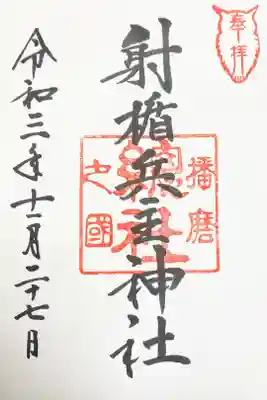 奉拝
射楯兵主神社
播磨
總社
之國
令和三年十一月二十七日